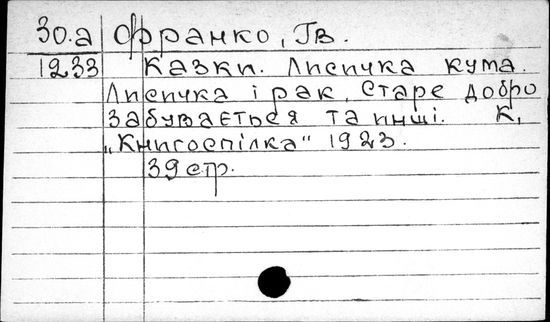 30.а Франко, Ів.
1233 Казки. Лисичка кума.
Лисичка і рак, Старе добро
забувається та инші. К,
„Книгоспілка" 1923.
39 стр.